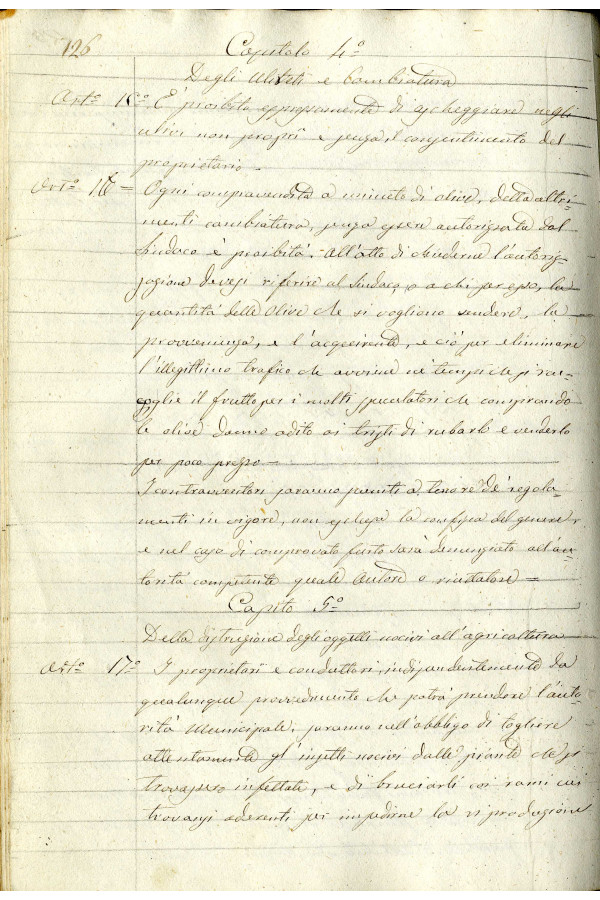 126
Capitolo 4º
Degli Uliveti e Cambiatura
Artº 15º È proibito espressamente di scheggiare negli
ulivi non proprî e senza il consentimento del
proprietario =
Artº 16 = Ogni compravendita a minuto di olive, detta altri-
menti cambiatura, senza essere autorizzata dal
Sindaco è proibita. All'atto di chiederne l'autoriz-
zazione devesi riferire al Sindaco, o a chi per esso, la
quantità delle Olive che si vogliono vendere, la
provvenienza, e l'acquirente, e ciò per eliminare
l'illegittimo traffico che avviene né tempi che si rac-
coglie il frutto per i molti speculatori che comprando
le olive danno adito ai tristi di rubarle e venderle
per poco prezzo =
I contravventori saranno puniti a tenore de' regola-
menti in vigore, non esclusa la confisca del genere
e nel caso di comprovato furto sarà denunziato all'au-
torità competente quale Autore o ricettatore =
Capito 5º
Della distruzione degli oggetti nocivi all'agricoltura
Artº 17º I proprietarî e conduttori indipendentemente da
qualunque provvedimento che potrà prendere l'auto-
rità Municipale, saranno nell'obbligo di togliere
attentamente gl'insetti nocivi dalle piante che si
trovassero infettate, e di bruciarli coi rami cui
trovansi aderenti per impedirne la riproduzione